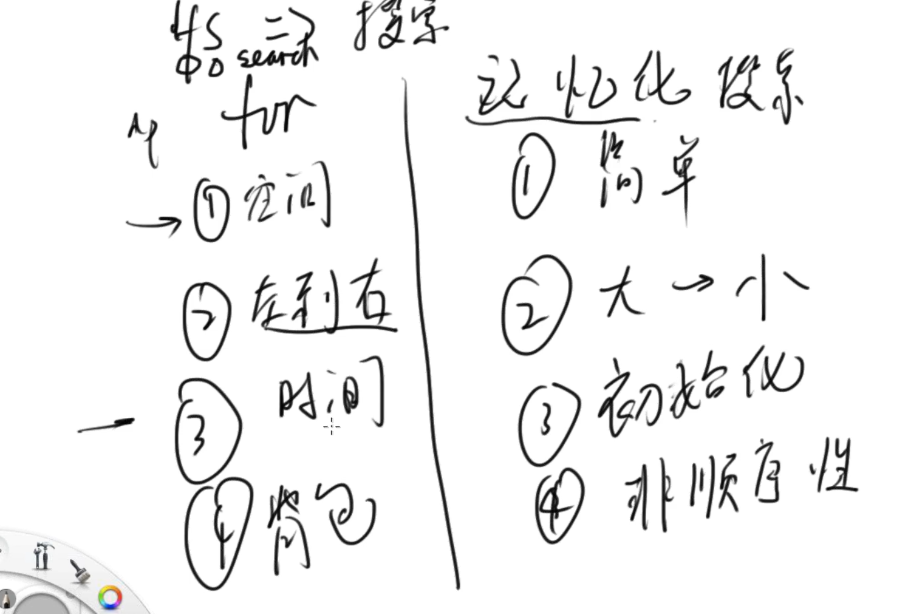 搜索
search
for
① 空间
② 左到右
③ 时间
④ 背包
记忆化搜索
① 简单
② 大→小
③ 初始化
④ 非顺序性